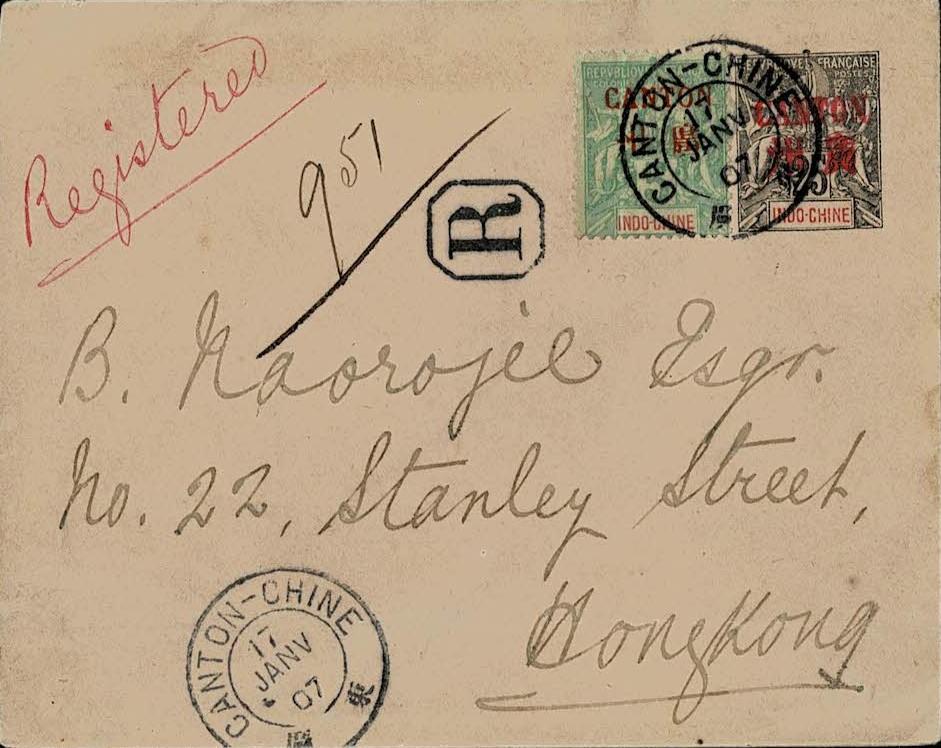 Registered
951
R
REPVBLIQVE FRANÇAISE
POSTES
CANTON
CANTON
25
INDO-CHINE
INDO-CHINE
CANTON-CHINE
17
JANV
07
B. Naorojee Esqr.
No. 22, Stanley Street,
Hongkong
CANTON-CHINE
17
JANV
07